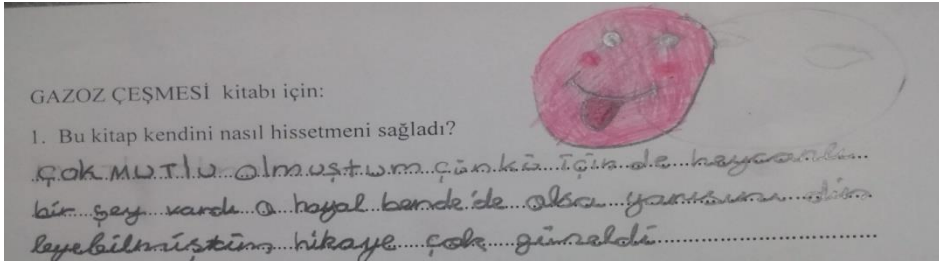 GAZOZ ÇEŞMESİ kitabı için:
1. Bu kitap kendini nasıl hissetmeni sağladı?
Çok MUTlu olmuştum çünkü için de heycanlı
bir şey vardı o hayal bende'de olsa yarısını din
leyebilmiştim hikaye çok güzeldi